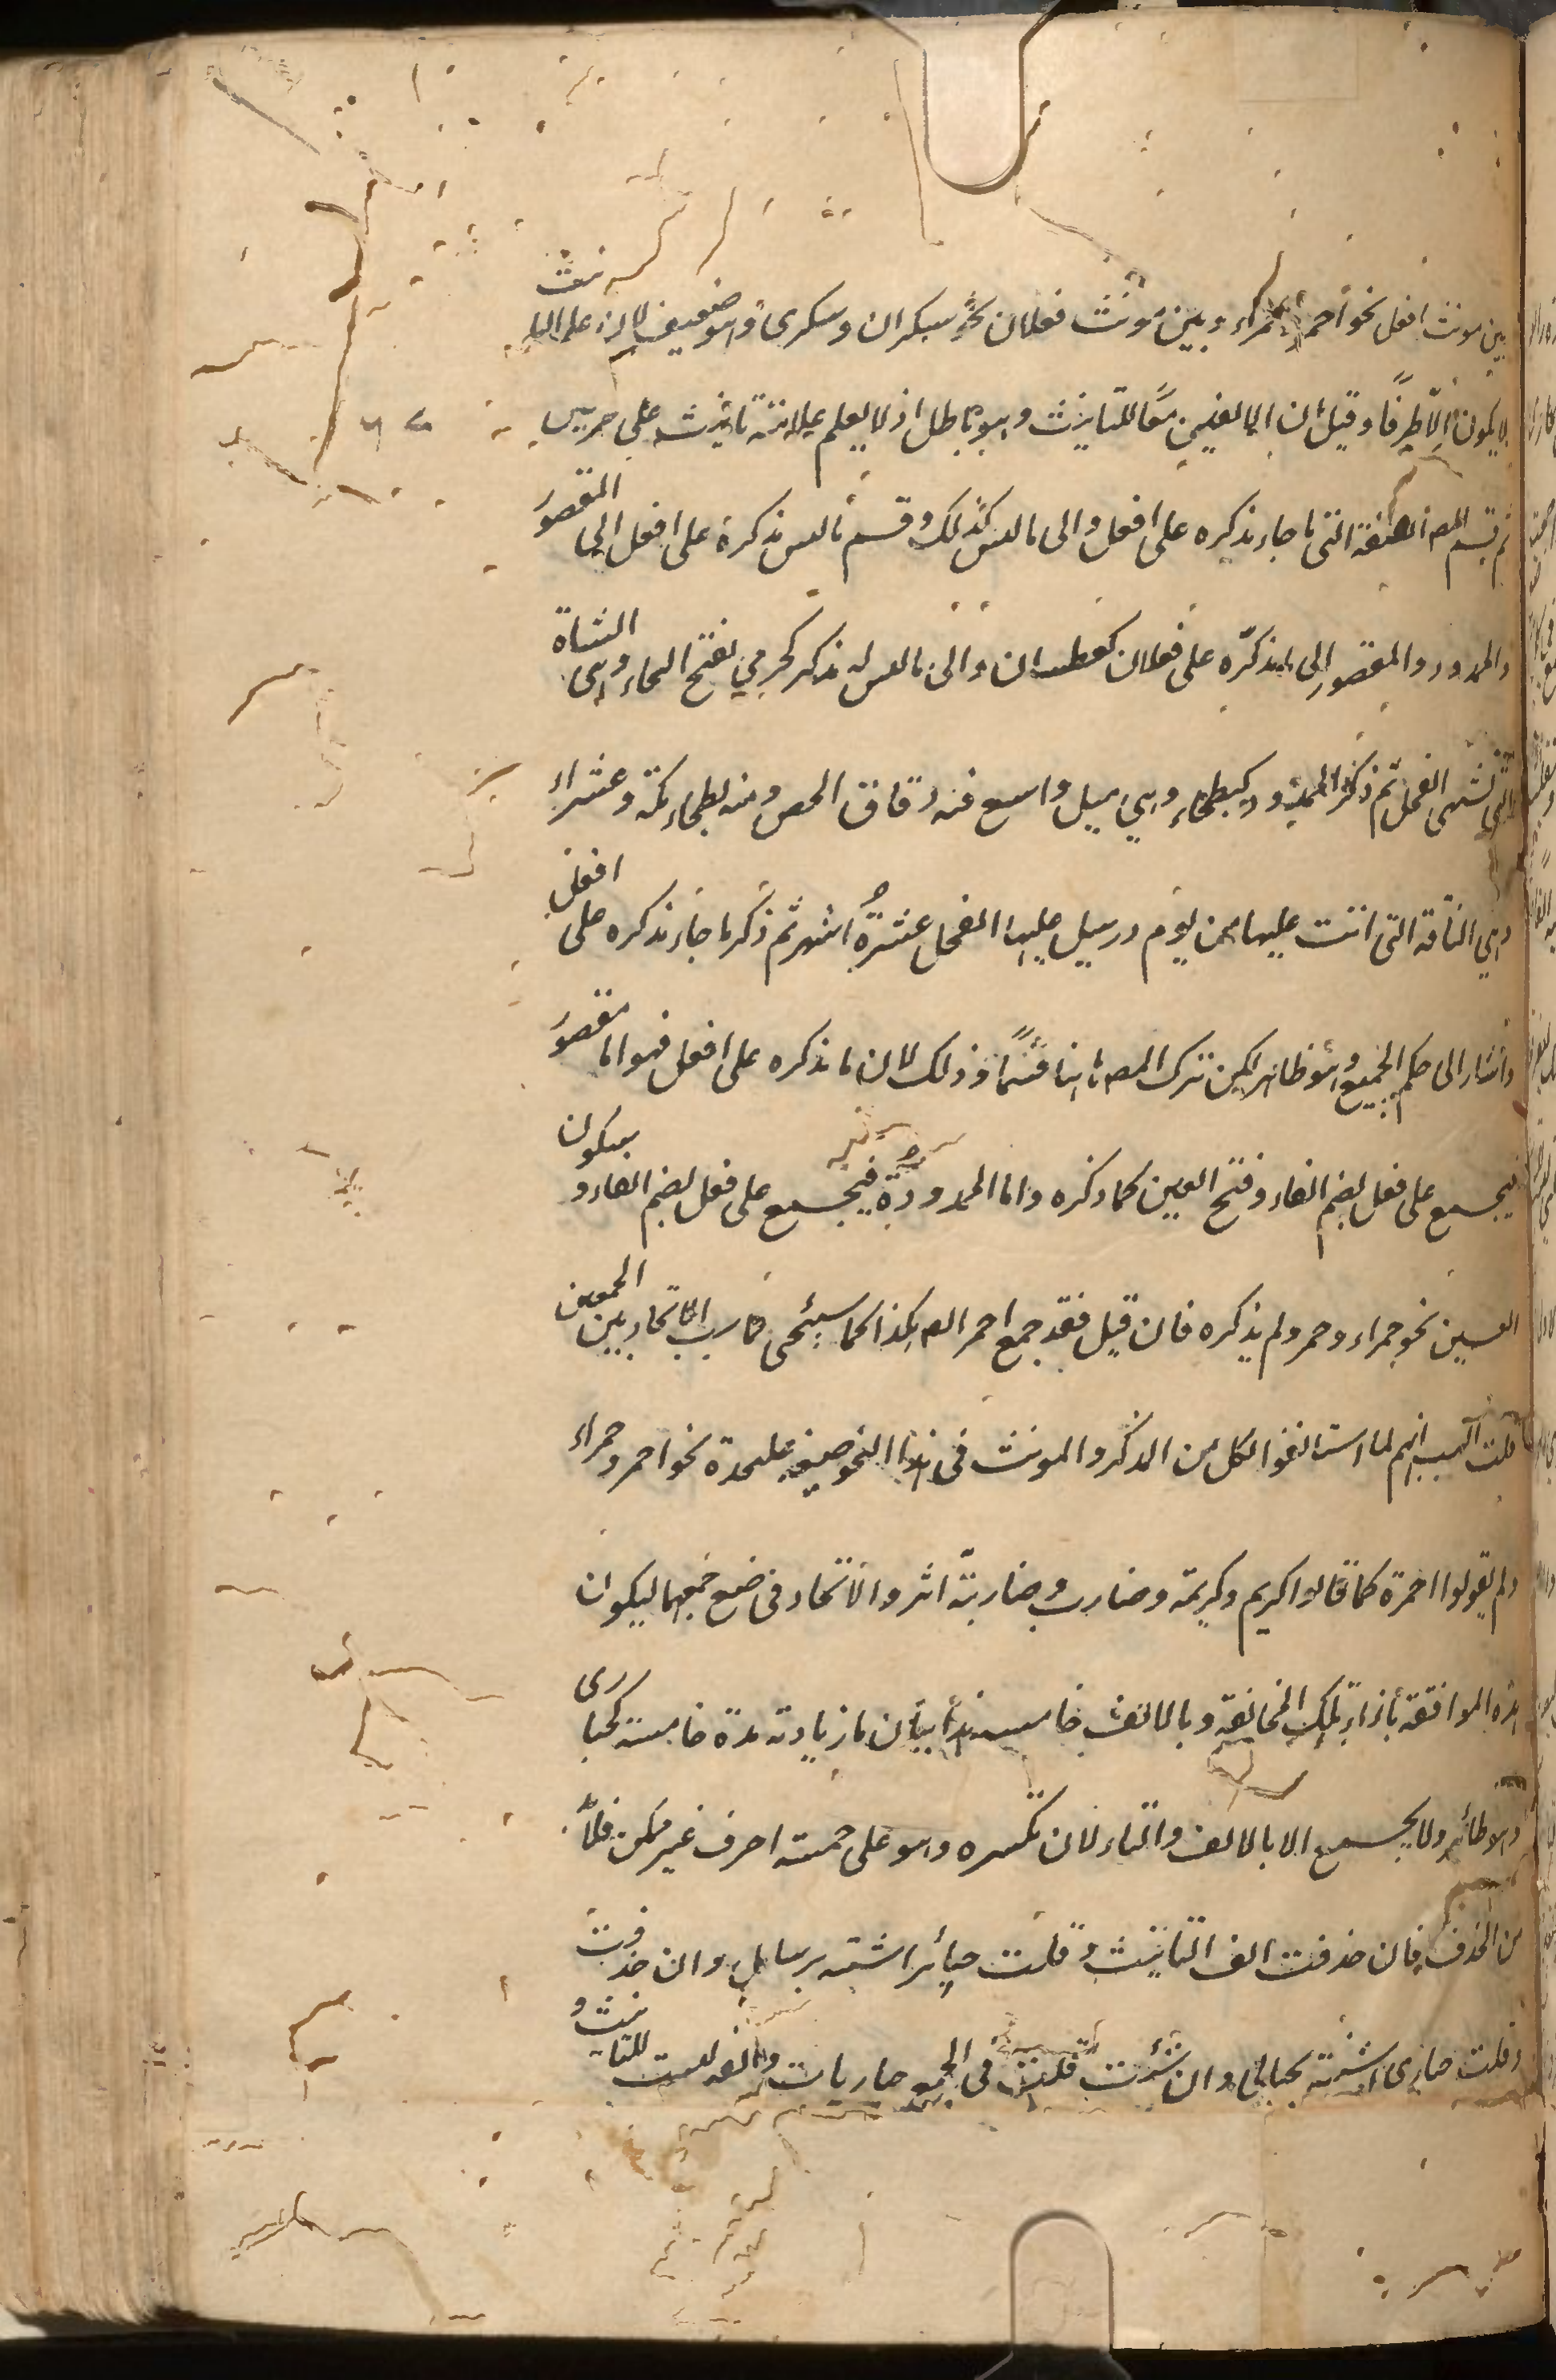 بين مونث افعل نحو احمر حمراء وبين مونث فعلان نحو سكران وسكرى وهو ضعيف لان علم التانيث
لا يكون الا طرفا وقيل ان الالفين معا للتانيث وهو باطل اذ لا يعلم علامة تانيث على حرفين
ثم قسم المص الصفة التى ما جاء مذكره على افعل والى ما ليس كذلك وقسم ما ليس مذكره على افعل الى المقصور
والممدود والمقصور الى ما مذكره على فعلان كعطشان والى ما ليس له مذكر كحرمي بفتح الحاء وهى الشاة
التى تشتهى الفحل ثم ذكر الممدود كبطحاء وهي مسيل واسع فيه دقاق الحصى ومنه بطحاء مكة وعشراء
وهي الناقة التى اتت عليها من يوم ارسل عليها الفحل عشرة اشهر ثم ذكر ما جاء مذكره على افعل
واشار الى حكم الجميع وهو ظاهر لكن ترك المص هاهنا قسما وذلك لان ما مذكره على افعل فهو اما مقصور
فيجمع على فعل بضم الفاء وفتح العين كما ذكره واما الممدودة فيجمع على فعل بضم الفاء وسكون
العين نحو حمراء وحمر ولم يذكره فان قيل فقد جمع احمر ايضا هكذا كما سيجئ فما سبب الاتحاد بين الجمعين
قلت السبب انهم لما استانفوا لكل من المذكر والمونث فى هذا النحو صيغة عليحدة نحو احمر وحمراء
ولم يقولوا احمرة كما قالوا كريم وكريمة وضارب وضاربة اثروا الاتحاد فى صيغ جمعهما ليكون
هذه الموافقة بازاء تلك المخالفة وبالالف خامسة هذا بيان ما زيادته مدة خامسة كحبارى
وهو طائر ولا يجمع الا بالالف والتاء لان تكسيره وهو على خمسة احرف غير ممكن فلا بد
من الحذف فان حذفت الف التانيث وقلت حبائر اشتبه برسايل وان حذفت
وقلت حبارى اشتبه بحبالى وان شئت قلت فى الجمع حباريات والفه ليست للتانيث و